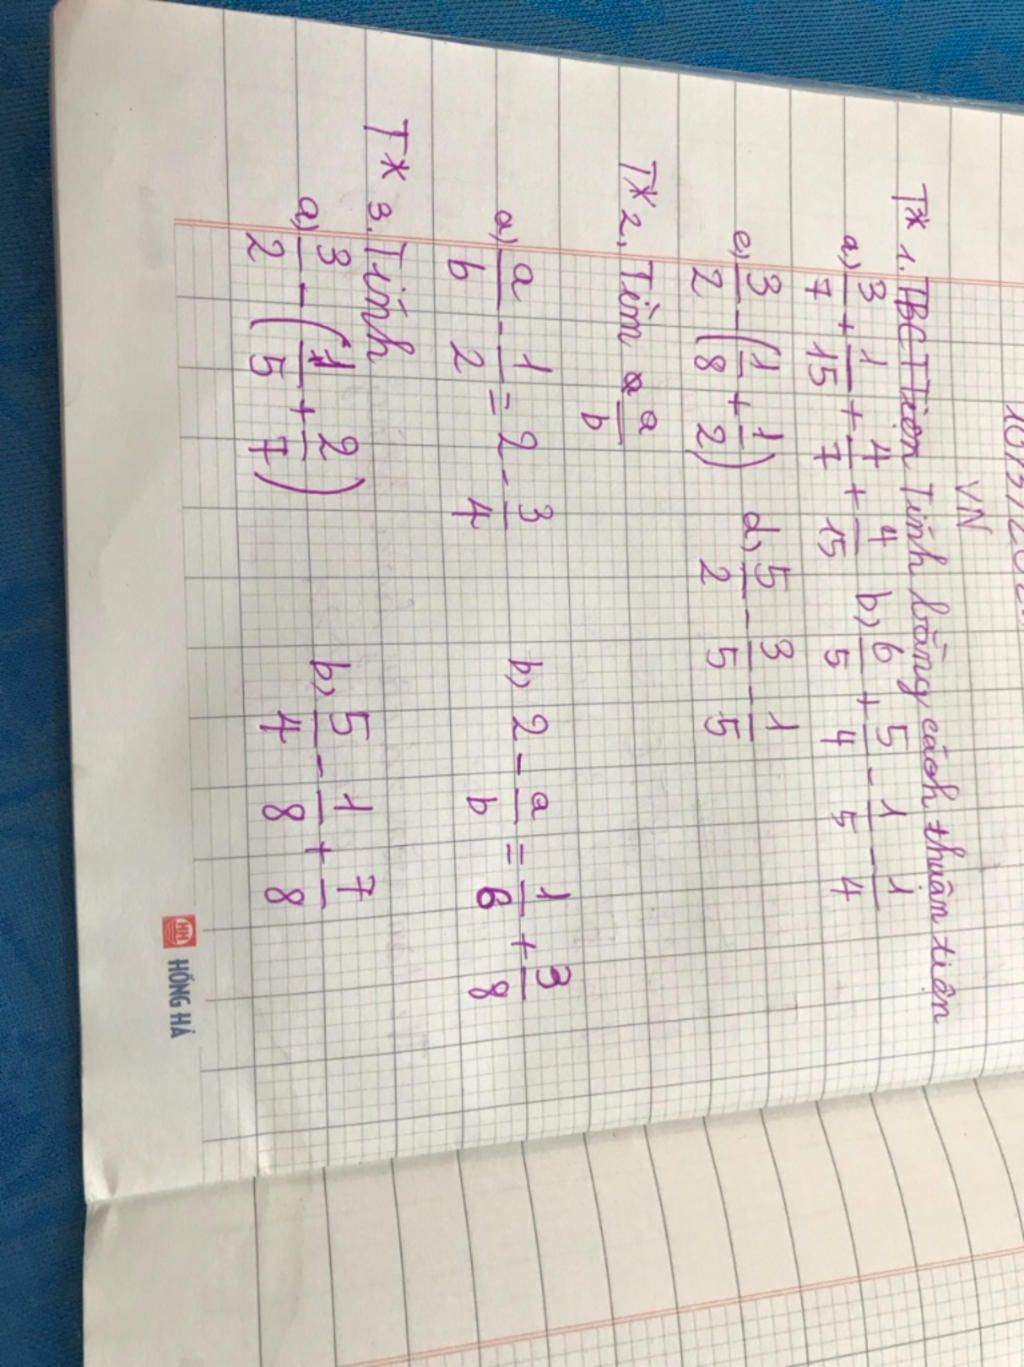 VN
T* 1. TBCTTiện Tính bằng cách thuận tiện
a) 3/7 + 1/15 + 4/7 + 4/15 b) 6/5 + 5/4 - 1/5 - 1/4
c) 3/2 - (1/8 + 1/2) d) 5/2 - 3/5 - 1/5
T* 2. Tìm a/b
a) a/b - 1/2 = 2 - 3/4 b) 2 - a/b = 1/6 + 3/8
T* 3. Tính
a) 3/2 - (1/5 + 2/7) b) 5/4 - 1/8 + 7/8
HH HỒNG HÀ